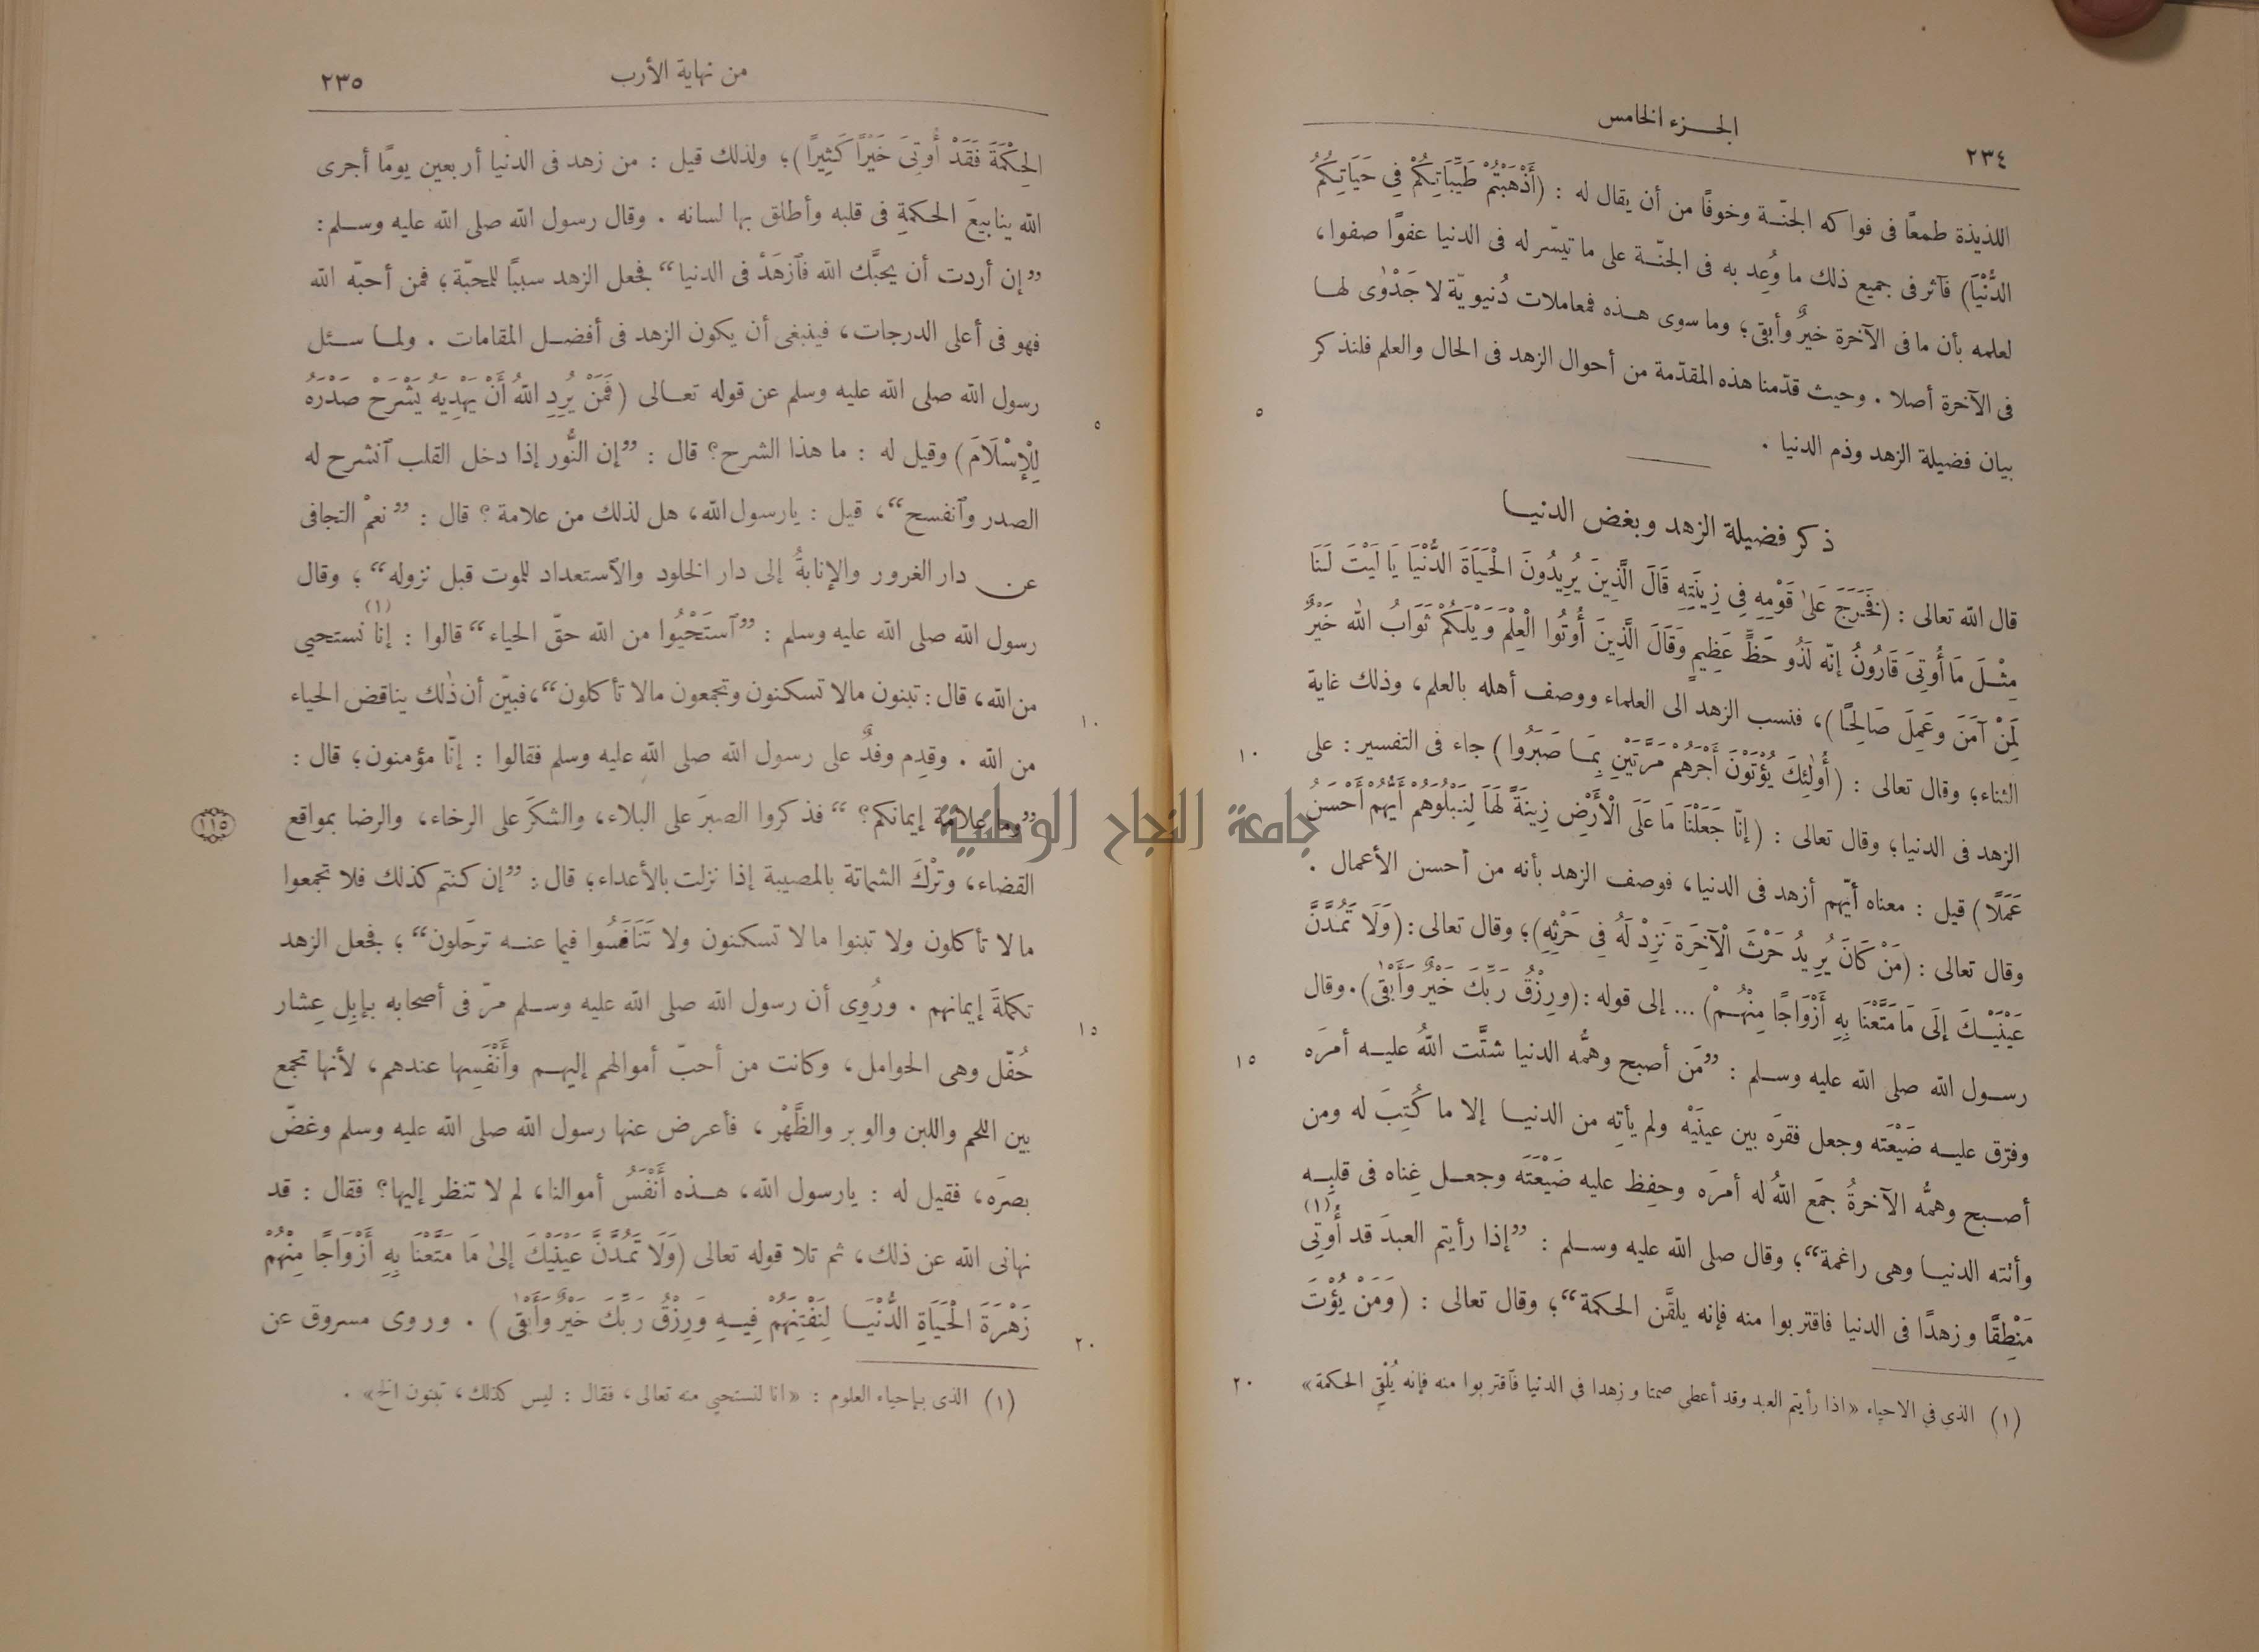 ٢٣٤
الجـزء الخامس
اللذيذة طمعًا فى فواكه الجنّـة وخوفًا من أن يقال له : (أَذْهَبْتُمْ طَيِّبَاتِكُمْ فِي حَيَاتِكُمُ
الدُّنْيَا) فآثر فى جميع ذلك ما وُعِد به فى الجنّـة على ما تيسّر له فى الدنيا عفوًا صفوا،
لعلمه بأن ما فى الآخرة خيرٌ وأبقى؛ وما سوى هـذه فمعاملات دُنيويّة لا جَدْوَى لهـا
فى الآخرة أصلا . وحيث قدّمنا هذه المقدّمة من أحوال الزهد فى الحال والعلم فلنذكر
٥
بيان فضيلة الزهد وذم الدنيا .
ذكر فضيلة الزهد وبغض الدنيـا
قال الله تعالى : (فَخَرَجَ عَلَىٰ قَوْمِهِ فِي زِينَتِهِ قَالَ الَّذِينَ يُرِيدُونَ الْحَيَاةَ الدُّنْيَا يَا لَيْتَ لَنَا
مِثْـلَ مَا أُوتِىَ قَارُونُ إنّه لَذُو حَظٍّ عَظِيمٍ وَقَالَ الَّذِينَ أُوتُوا الْعِلْمَ وَيْلَكُمْ ثَوَابُ الله خَيْرٌ
لِمَنْ آمَنَ وعَمِلَ صَالِحًا)، فنسب الزهد الى العلماء ووصف أهله بالعلم، وذلك غاية
الثناء؛ وقال تعالى : (أُولٰئِكَ يُؤْتَوْنَ أَجْرَهُمْ مَرَّتَيْنِ بِمَـا صَبَرُوا) جاء فى التفسير : على
١٠
الزهد فى الدنيا؛ وقال تعالى : (إنّا جَعَلْنَا مَا عَلَى الْأَرْضِ زِينَةً لَهَا لِنَبْلُوَهُمْ أَيُّهُمْ أَحْسَنُ
عَمَلًا) قيل : معناه أيّهم أزهد فى الدنيا، فوصف الزهد بأنه من أحسن الأعمال .
وقال تعالى : (مَنْ كَانَ يُرِيدُ حَرْثَ الْآخِرَةِ نَزِدْ لَهُ فِي حَرْثِهِ)؛ وقال تعالى : (وَلَا تَمُدَّنَّ
عَيْنَيْـكَ إلَى مَا مَتَّعْنَا بِهِ أَزْوَاجًا مِنْهُـمْ) ... إلى قوله : (ورِزْقُ رَبِّكَ خَيْرٌ وَأَبْقَىٰ) . وقال
رسـول الله صلى الله عليه وسـلم : ”مَن أصبح وهمُّه الدنيا شتَّت اللهُ عليـه أمرَه
١٥
وفرّق عليـه ضَيْعَته وجعل فقرَه بين عينَيْه ولم يأتِه من الدنيـا إلا ما كُتِبَ له ومن
أصـبح وهمُّه الآخرةُ جمَع اللهُ له أمرَه وحفِظ عليه ضَيْعَتَه وجعـل غِناه فى قلبِـه
وأتته الدنيـا وهى راغمة“؛ وقال صلى الله عليه وسـلم : ”إذا رأيتم العبدَ قد أُوتِىَ (١)
مَنْطِقًا وزهدًا فى الدنيا فاقتربوا منه فإنه يلقَّن الحكمة“؛ وقال تعالى : (وَمَنْ يُؤْتَ
(١) الذى فى الاحياء «اذا رأيتم العبد وقد أعطى صمتا وزهدا فى الدنيا فآقتربوا منه فإنه يُلْقِي الحكمة»
٢٠
من نهاية الأرب
٢٣٥
الحِكْمَةَ فَقَدْ أُوتِىَ خَيْرًا كَثِيرًا)؛ ولذلك قيل : من زهد فى الدنيا أربعين يومًا أجرى
الله ينابيعَ الحكمةِ فى قلبه وأطلق بها لسانه . وقال رسول الله صلى الله عليه وسـلم :
”إن أردت أن يحبَّك الله فٱزهَدْ فى الدنيا“ فجعل الزهد سببًا للمحبّة؛ فمن أحبّه الله
فهو فى أعلى الدرجات، فينبغى أن يكون الزهد فى أفضـل المقامات . ولمـا سـئل
رسول الله صلى الله عليه وسلم عن قوله تعـالى (فَمَنْ يُرِدِ اللهُ أَنْ يَهْدِيَهُ يَشْرَحْ صَدْرَهُ
٥
لِلْإِسْلَامَ) وقيل له : ما هذا الشرح؟ قال : ”إن النُّور إذا دخل القلب آنشرح له
الصدر وآنفسح“، قيل : يارسول الله، هل لذلك من علامة؟ قال : ”نعمْ التجافى
عن دار الغرور والإنابةُ إلى دار الخلود والآستعداد للموت قبل نزوله“؛ وقال
رسول الله صلى الله عليه وسلم : ”آستَحْيُوا من الله حقّ الحياء“ قالوا : إنا (١) نستحيى
من الله، قال : تبنون مالا تسكنون وتجمعون مالا تأكلون“، فبيّن أن ذٰلك يناقض الحياء
١٠
من الله . وقدِم وفدٌ على رسول الله صلى الله عليه وسلم فقالوا : إنّا مؤمنون؛ قال :
”وما علامة إيمانكم؟“ فذكروا الصبرَ على البلاء، والشكرَ على الرخاء، والرضا بمواقع
١١٥
جامعة النجاح الوطنية
القضاء، وترْكَ الشماتة بالمصيبة إذا نزلت بالأعداء؛ قال : ”إن كنتم كذلك فلا تجمعوا
مالا تأكلون ولا تبنوا مالا تسكنون ولا تَنَافَسُوا فيما عنـه ترحَلون“؛ فجعل الزهد
تكملةَ إيمانهم . ورُوِى أن رسول الله صلى الله عليه وسـلم مرّ فى أصحابه بإبِلٍ عِشار
١٥
حُفّل وهى الحوامل، وكانت من أحبّ أموالهم إليهـم وأَنْفَسِها عندهم، لأنها تجمع
بين اللحم واللبن والوبر والظَّهْر، فأعرض عنها رسول الله صلى الله عليه وسلم وغضّ
بصرَه، فقيل له : يارسول الله، هـذه أَنْفَسُ أموالنا، لم لا تنظر إليها؟ فقال : قد
نهانى الله عن ذلك، ثم تلا قوله تعالى (وَلَا تَمُدَّنَّ عَيْنَيْكَ إلىٰ مَا مَتَّعْنَا بِهِ أَزْوَاجًا مِنْهُمْ
زَهْرَةَ الْحَيَاةِ الدُّنْيَـا لِنَفْتِنَهُمْ فِيـهِ وَرِزْقُ رَبِّكَ خَيْرٌ وَأَبْقىٰ) . وروى مسروق عن
٢٠
(١) الذى بإحياء العلوم : «انا لنستحيي منه تعالى، فقال : ليس كذلك، تبنون الخ» .